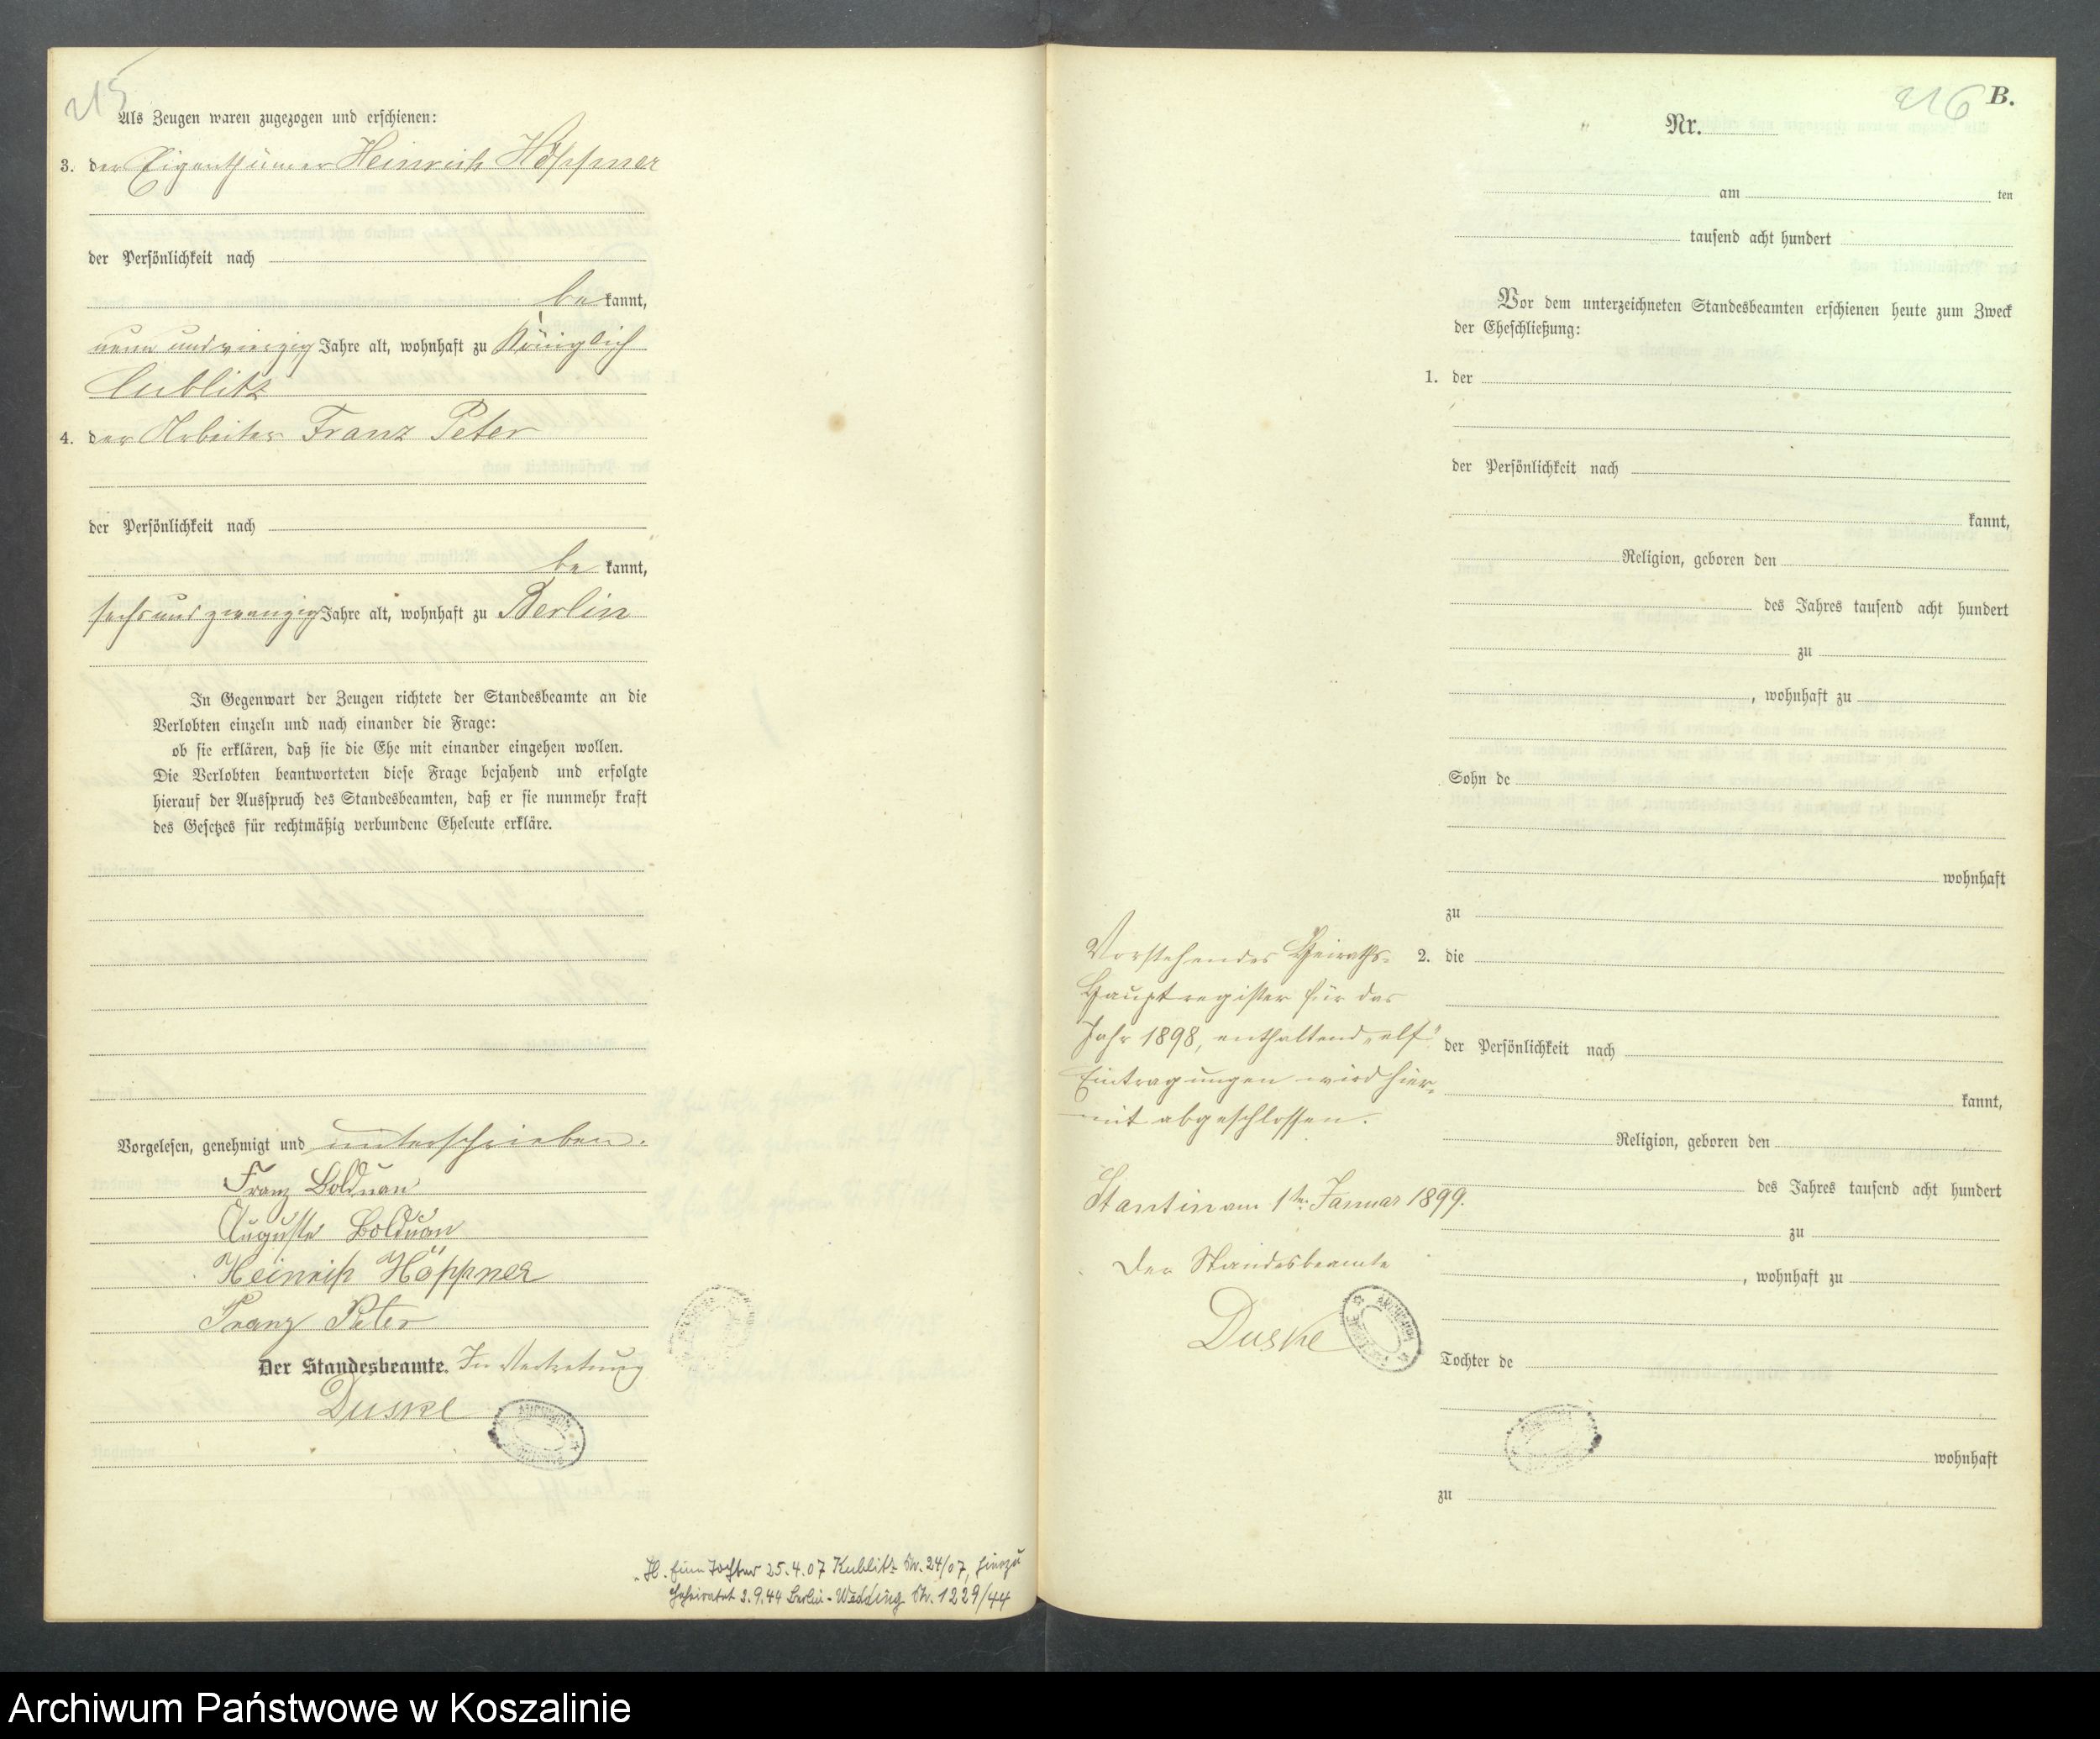 215
Als Zeugen waren zugezogen und erschienen:
3. der Eigenthümer Heinrich Höppner
der Persönlichkeit nach
be kannt,
neun und vierzig Jahre alt, wohnhaft zu Königlich
Cublitz
4. der Arbeiter Franz Peter
der Persönlichkeit nach
be kannt,
sechs und zwanzig Jahre alt, wohnhaft zu Berlin
In Gegenwart der Zeugen richtete der Standesbeamte an die
Verlobten einzeln und nach einander die Frage:
ob sie erklären, daß sie die Ehe mit einander eingehen wollen.
Die Verlobten beantworteten diese Frage bejahend und erfolgte
hierauf der Ausspruch des Standesbeamten, daß er sie nunmehr kraft
des Gesetzes für rechtmäßig verbundene Eheleute erkläre.
Vorgelesen, genehmigt und unterschrieben.
Franz Bolduan
Auguste Bolduan
Heinrich Höppner
Franz Peter
Der Standesbeamte. In Vertretung
Duske
H. Eine Tochter 25.4.07 Kublitz Nr. 24/07, hierzu
geheiratet 2.9.44 Berlin-Wedding Nr. 1229/44
216 B.
Nr.
am ten
tausend acht hundert
Vor dem unterzeichneten Standesbeamten erschienen heute zum Zweck
der Eheschließung:
1. der
der Persönlichkeit nach
kannt,
Religion, geboren den
des Jahres tausend acht hundert
zu
, wohnhaft zu
Sohn de
wohnhaft
zu
2. die
der Persönlichkeit nach
kannt,
Religion, geboren den
des Jahres tausend acht hundert
zu
, wohnhaft zu
Tochter de
wohnhaft
zu
Vorstehendes Heiraths-
Hauptregister für das
Jahr 1898, enthaltend „elf"
Eintragungen wird hier-
mit abgeschlossen.
Stantin am 1ten Januar 1899.
Der Standesbeamte
Duske
Archiwum Państwowe w Koszalinie